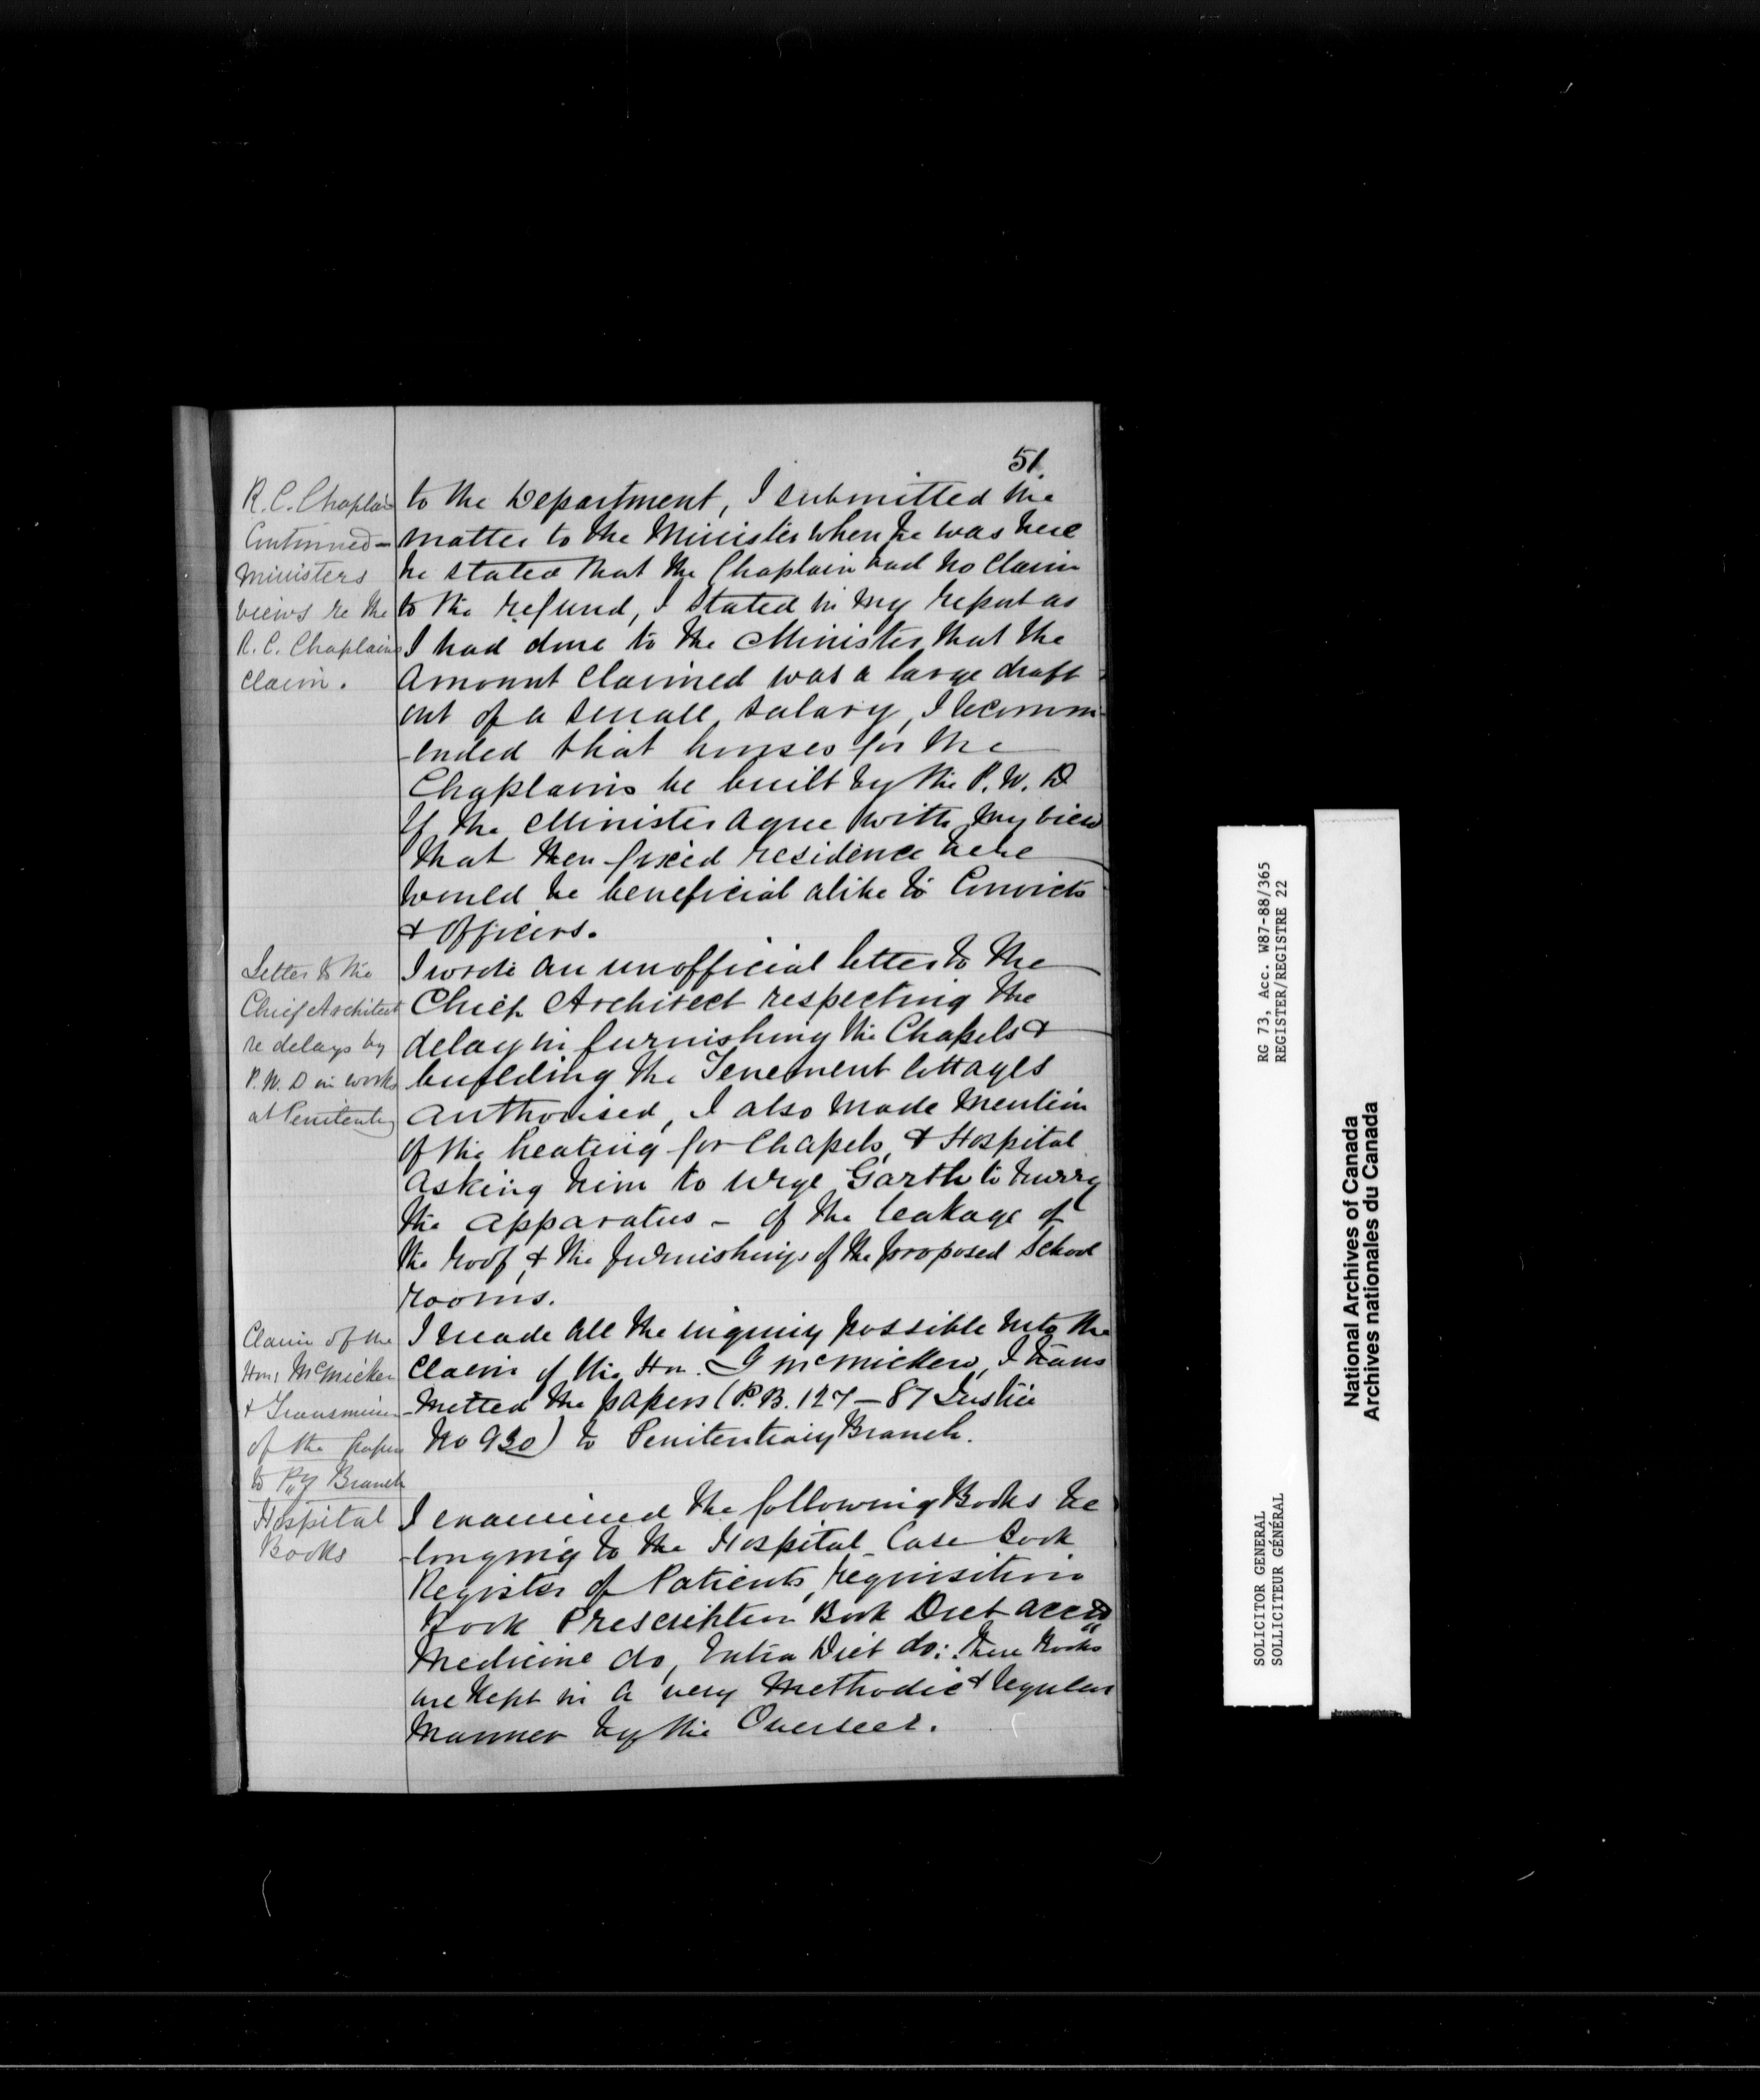 51.
R. C. Chaplain
Continued —
Ministers
views re the
R. C. Chaplains
claim.
to the Department, I submitted the
matter to the Minister when he was here
he stated that the Chaplain had no claim
to the refund, I stated in my report as
I had done to the Minister that the
amount claimed was a large draft
out of a small salary, I recomm-
-ended that houses for the
Chaplains be built by the P. W. D
If the Minister agree with my view
that their fixed residence here
would be beneficial alike to Convicts
& Officers.
Letter to the
Chief Architect
re delays by
P. W. D in works
at Penitentiary
I wrote an unofficial letter to the
Chief Architect respecting the
delay in furnishing the Chapels &
building the Tenement Cottages
authorised, I also made mention
of the heating for Chapels, & Hospital
asking him to urge Garth to hurry
the apparatus – of the leakage of
the roof, & the furnishings of the proposed School
rooms.
Claim of the
Hon: McMicken
& Transmission
of the papers
to Py Branch
I made all the inquiry possible into the
claim of the Hon. G McMicken, I trans
-mitted the papers (P.B. 127 – 87 Justice
No 930) to Penitentiary Branch.
Hospital
Books
I examined the following Books be
-longing to the Hospital – Case book
Register of Patients, requisition
Book Prescription Book Diet acct
Medicine do, Extra Diet do: These books
are kept in a very methodic & regular
manner by the Overseer.
RG 73, Acc. W87-88/365
REGISTER/REGISTRE 22
SOLICITOR GENERAL
SOLLICITEUR GÉNÉRAL
National Archives of Canada
Archives nationales du Canada